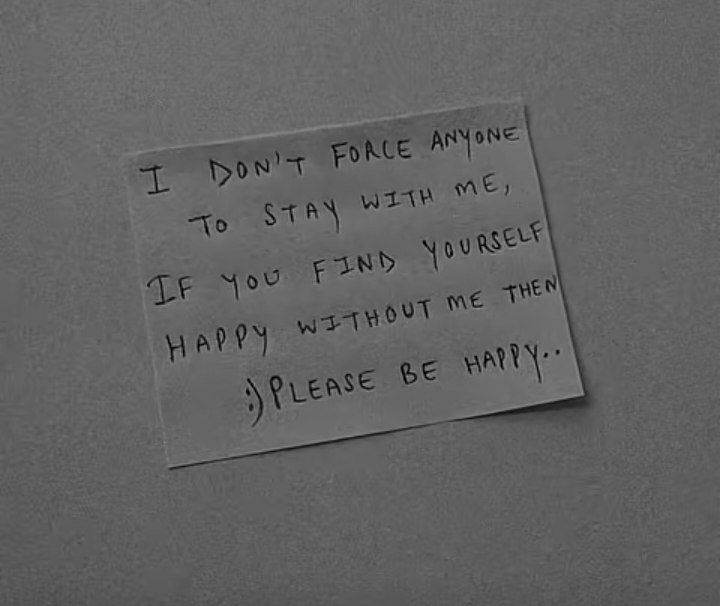 I DON'T FORCE ANYONE
TO STAY WITH ME,
IF YOU FIND YOURSELF
HAPPY WITHOUT ME THEN
:) PLEASE BE HAPPY..